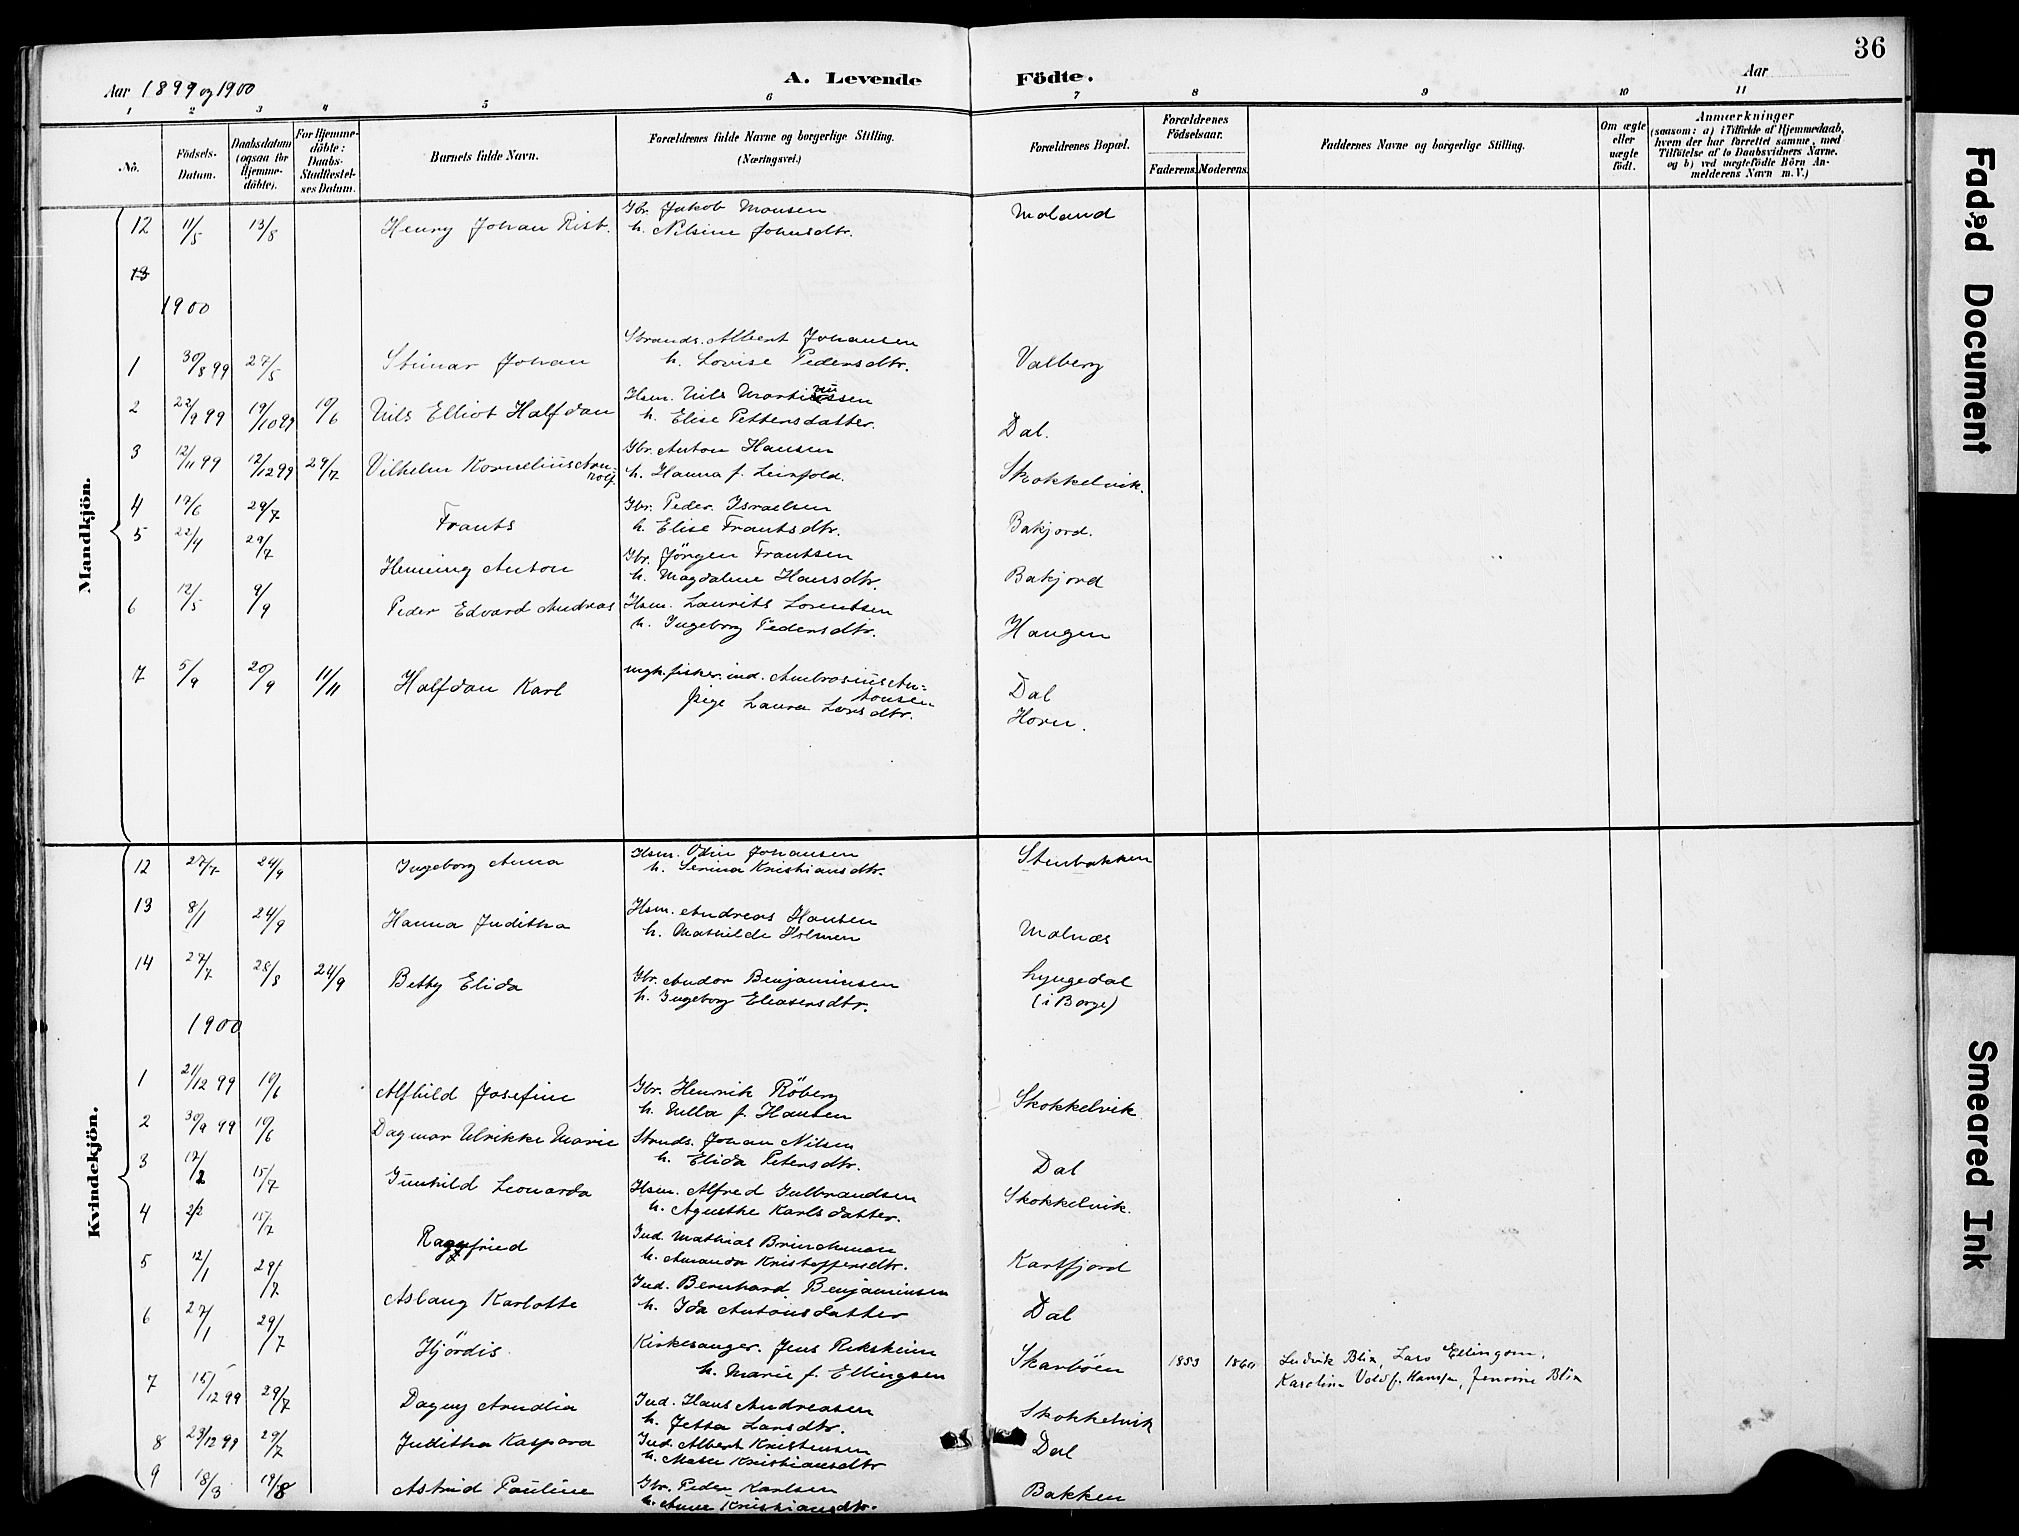 36
Aar 1899 og 1900
A. Levende Födte.
Aar
1 2 3 4 5 6 7 8 9 10 11
No.
Födsels-Datum.
Daabsdatum (ogsaa for Hjemmedöbte).
For Hjemmedöbte: Daabs-Stadfæstelses Datum.
Barnets fulde Navn.
Forældrenes fulde Navne og borgerlige Stilling. (Næringsvei.)
Forældrenes Bopæl.
Forældrenes Födselsaar.
Faderens. Moderens.
Faddernes Navne og borgerlige Stilling.
Om ægte eller uægte födt.
Anmærkninger
(saasom: a) i Tilfælde af Hjemmedaab, hvem der har forrettet samme, med Tilföielse af to Daabsvidners Navne. og b) ved uægtefödte Börn Anmelderens Navn m. V.)
Mandkjön.
12 11/5 13/8 Henry Johan Rist. Gbr. Jakob Monsen Moland
h. Nilsine Johnsdtr.
13
1900
1 30/8 99 27/5 Steinar Johan Strands. Albert Johansen Valberg
h. Lovise Pedersdtr.
2 22/9 99 19/10 99 10/6 Nils Elliot Halfdan Hsm. Nils Martinussen Dal.
h. Elise Pettersdatter.
3 12/11 99 12/12 99 29/7 Vilhelm Kornelius Arnnolf Gbr. Anton Hansen Skokkelvik.
h. Hanna f. Leinfold.
4 17/6 29/7 Frants Gbr. Peder Israelsen Bakjord.
h. Elise Frantsdtr.
5 22/4 29/7 Henning Anton Gbr. Jörgen Frantsen Bakjord
h. Magdalene Hansdtr.
6 12/5 9/9 Peder Edvard Andreas Hsm. Laurits Lorentsen Haugen
h. Ingeborg Pedersdtr.
7 5/9 20/9 11/11 Halfdan Karl ungk. fisker. ind. Ambrosius Antonsen Dal
Pige Laura Larsdtr. Horn.
Kvindekjön.
12 27/7 24/9 Ingeborg Anna Hsm. Odin Johansen Stenbakken
h. Serina Kristiansdtr.
13 8/1 24/9 Hanna Juditha Hsm. Andreas Hansen Molnæs
h. Mathilde Holmen
14 27/7 28/8 24/9 Betty Elida Gbr. Andor Benjaminsen Lyngedal
h. Ingeborg Eleasersdtr. (i Borge)
1900
1 21/12 99 10/6 Alfhild Josefine Gbr. Henrik Röberg Skokkelvik
h. Nella f. Hansen
2 30/9 99 10/6 Dagmar Ulrikke Marie Strnds. Johan Nilsen Dal
h. Elida Petersdtr.
3 17/2 15/7 Gunhild Leonarda Hsm. Alfred Gulbrandsen Skokkelvik.
h. Aguethe Karlsdatter.
4 2/2 15/7 Ragnfried Ind. Mathias Brinchman Kartfjord
h. Amanda Kristoffersdtr.
5 12/1 29/7 Aslaug Karlotte Ind. Bernhard Benjaminsen Dal
h. Ida Antonsdatter
6 27/1 29/7 Hjördis Kirkesanger. Jens Reksheim Skarböen 1853 1860 Ludvik Blix, Lars Ellingsen,
h. Marie f. Ellingsen Karoline Vold f. Hansen, Jennine Blix
7 15/12 99 29/7 Dagny Arndlia Ind. Hans Andreasen Skokkelvik
h. Jetta Larsdtr.
8 23/12 99 29/7 Juditha Kaspara Ind. Albert Kristensen Dal
h. Mette Kristiansdtr
9 18/3 19/8 Astrid Pauline Gbr. Peder Karlsen Bakken
h. Anne Kristiansdtr.
Faded Document
Smeared Ink